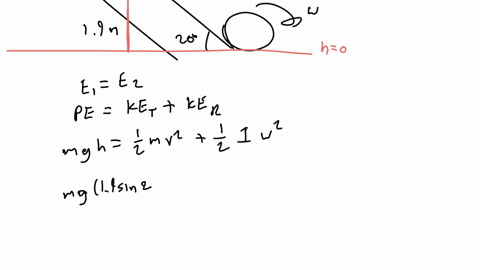 ω
1.9m
20°
h=0
E₁ = E₂
PE = KE_T + KE_R
mgh = 1/2 mv² + 1/2 I ω²
mg(1.9sin2